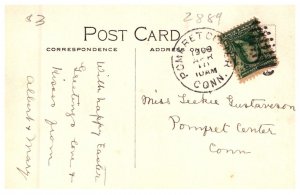 2889
83
POST CARD
CORRESPONDENCE
ADDRESS
POMFRET CEN
1909
APR
10
10AM
CONN.
With happy Easter
Greetings love &
Kisses from
Albert & Mary
Miss Gustaveson
Pomfret Center
Conn